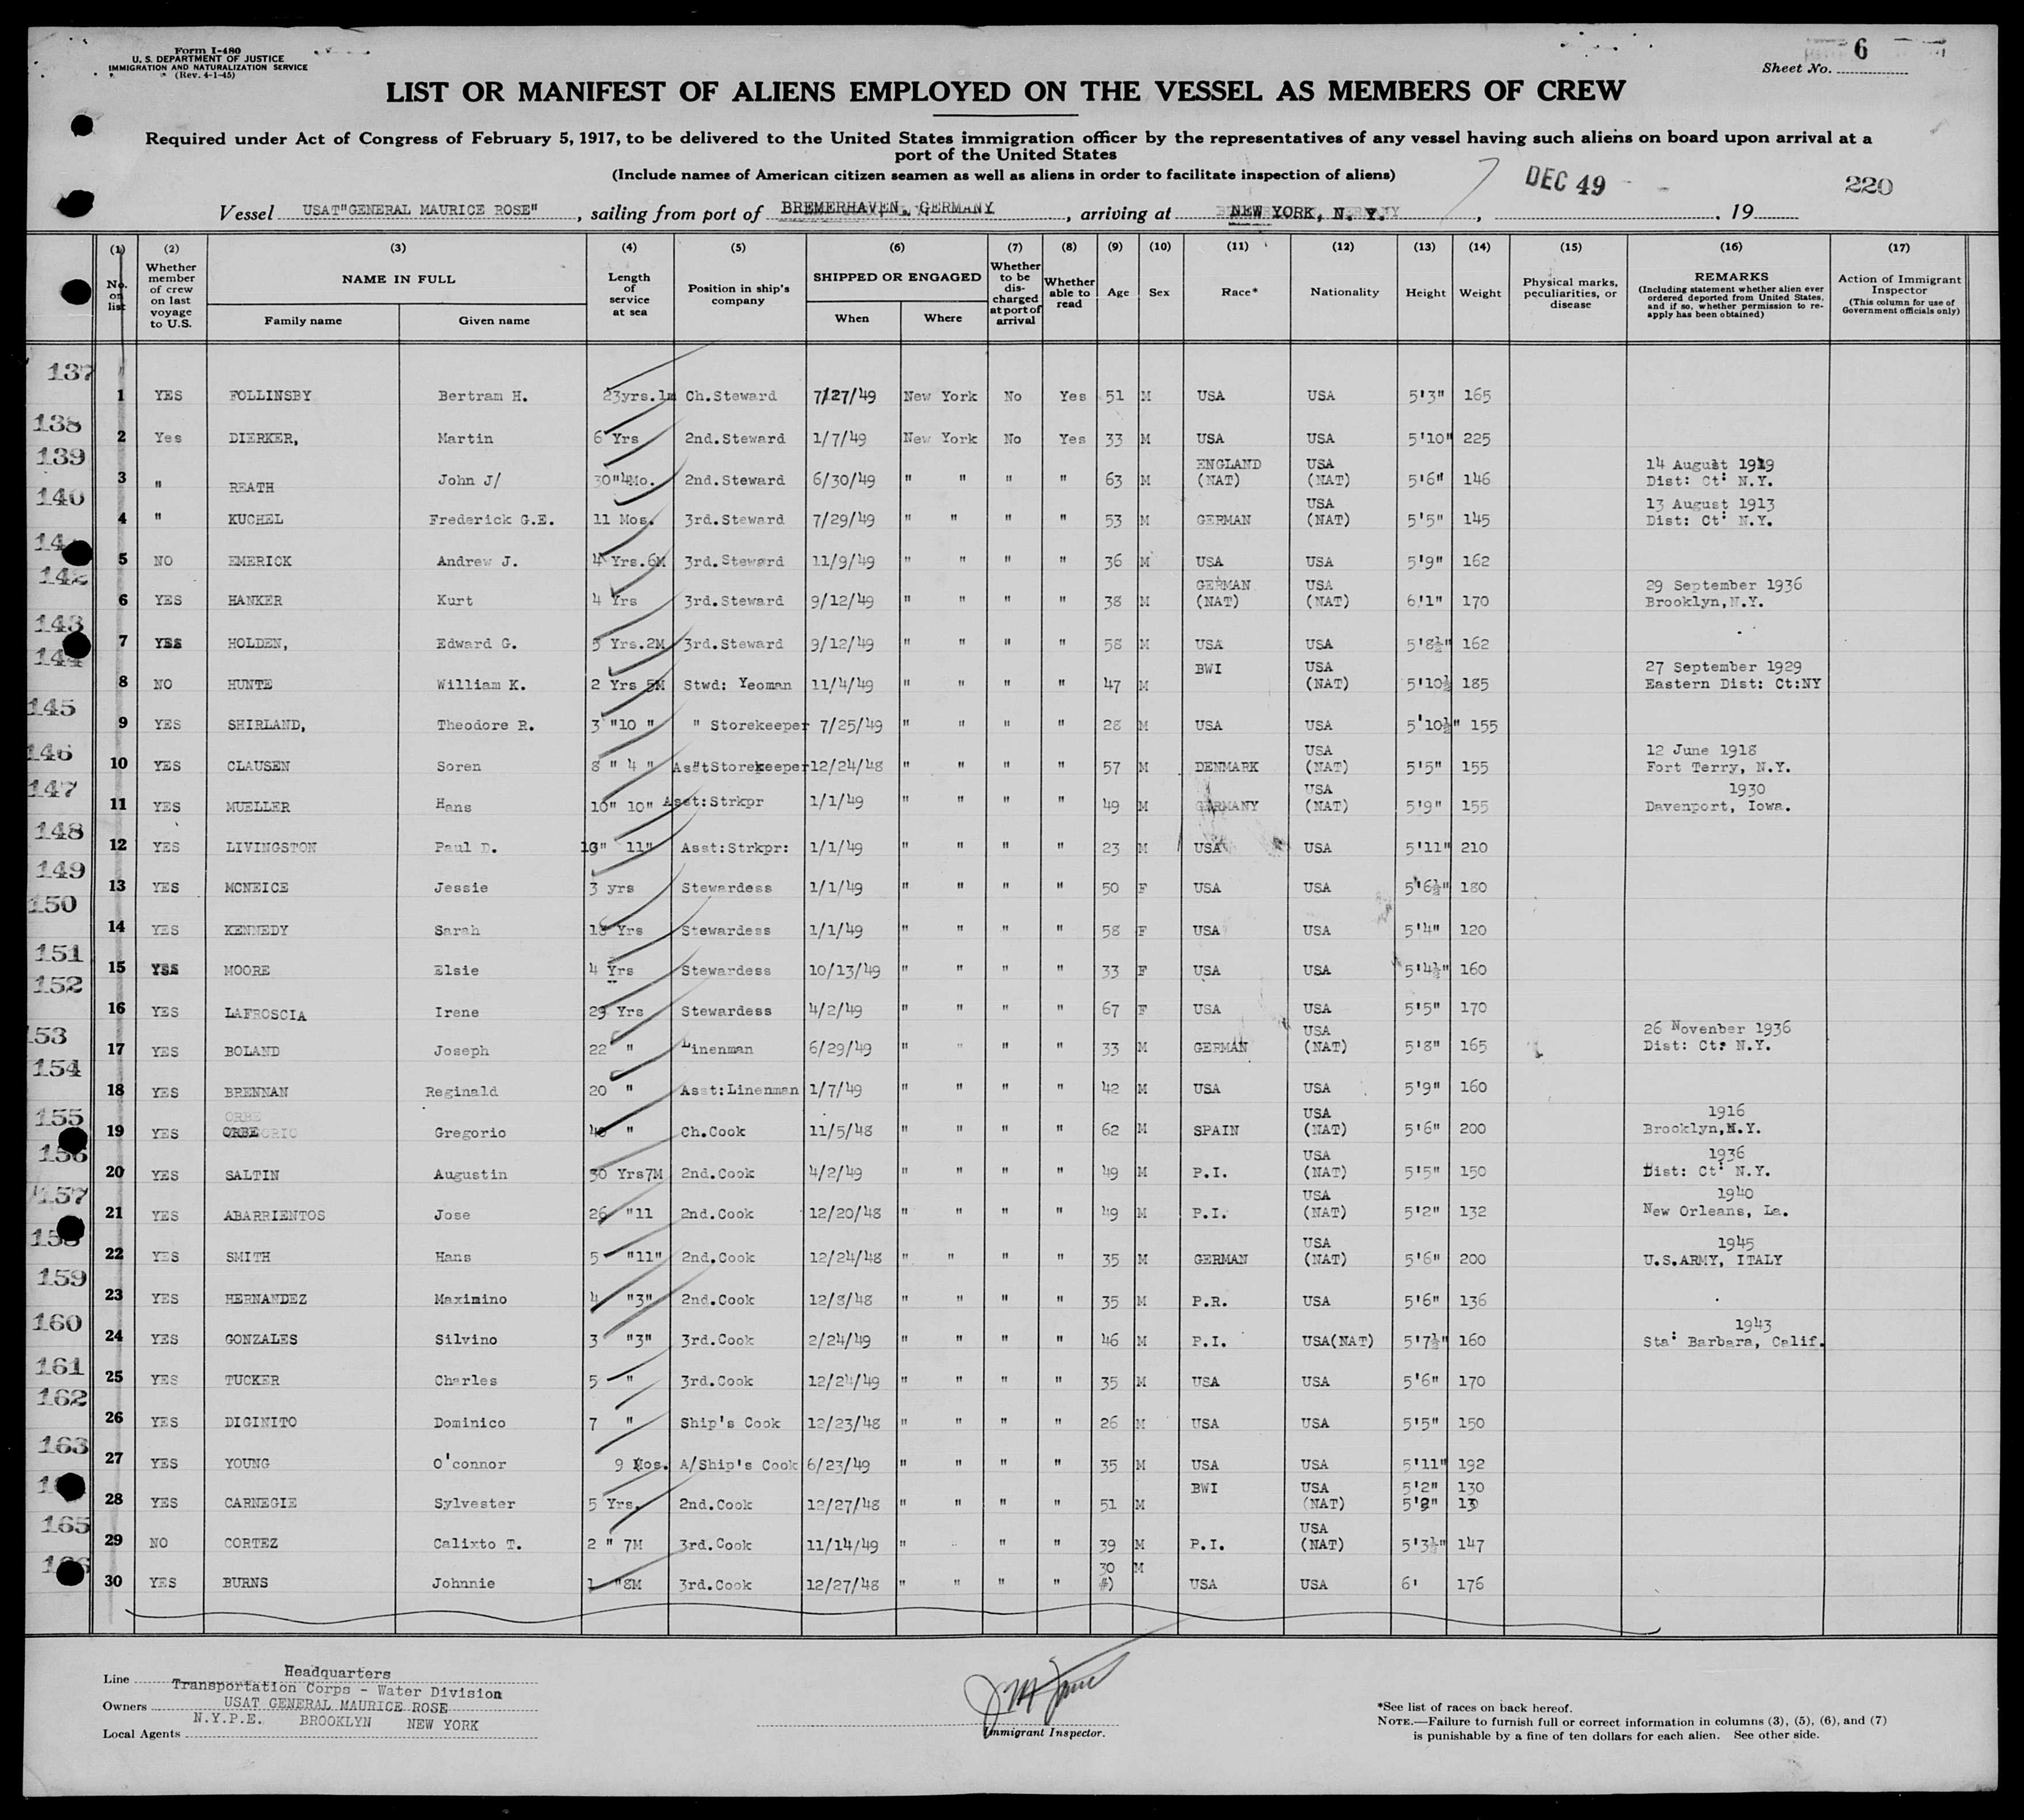 Form I-480
U. S. DEPARTMENT OF JUSTICE
IMMIGRATION AND NATURALIZATION SERVICE
(Rev. 4-1-45)
6
Sheet No.
LIST OR MANIFEST OF ALIENS EMPLOYED ON THE VESSEL AS MEMBERS OF CREW
Required under Act of Congress of February 5, 1917, to be delivered to the United States immigration officer by the representatives of any vessel having such aliens on board upon arrival at a
port of the United States
(Include names of American citizen seamen as well as aliens in order to facilitate inspection of aliens)
DEC 49
220
Vessel USAT"GENERAL MAURICE ROSE", sailing from port of BREMERHAVEN, GERMANY, arriving at NEW YORK, N. Y., , 19
(1) (2) (3) (4) (5) (6) (7) (8) (9) (10) (11) (12) (13) (14) (15) (16) (17)
No. on list
Whether member of crew on last voyage to U.S.
NAME IN FULL
Family name
Given name
Length of service at sea
Position in ship's company
SHIPPED OR ENGAGED
When
Where
Whether to be discharged at port of arrival
Whether able to read
Age
Sex
Race*
Nationality
Height
Weight
Physical marks, peculiarities, or disease
REMARKS
(Including statement whether alien ever ordered deported from United States, and if so, whether permission to re-apply has been obtained)
Action of Immigrant Inspector
(This column for use of Government officials only)
137
1 YES FOLLINSBY Bertram H. 23yrs.1m Ch.Steward 7/27/49 New York No Yes 51 M USA USA 5'3" 165
138
2 Yes DIERKER, Martin 6 Yrs 2nd.Steward 1/7/49 New York No Yes 33 M USA USA 5'10" 225
139
3 " REATH John J/ 30"4Mo. 2nd.Steward 6/30/49 " " " " 63 M ENGLAND (NAT) USA (NAT) 5'6" 146 14 August 1919 Dist: Ct: N.Y.
140
4 " KUCHEL Frederick G.E. 11 Mos. 3rd.Steward 7/29/49 " " " " 53 M GERMAN USA (NAT) 5'5" 145 13 August 1913 Dist: Ct: N.Y.
5 NO EMERICK Andrew J. 4 Yrs.6M 3rd.Steward 11/9/49 " " " " 36 M USA USA 5'9" 162
142
6 YES HANKER Kurt 4 Yrs 3rd.Steward 9/12/49 " " " " 38 M GERMAN (NAT) USA (NAT) 6'1" 170 29 September 1936 Brooklyn,N.Y.
143
7 YES HOLDEN, Edward G. 5 Yrs.2M 3rd.Steward 9/12/49 " " " " 58 M USA USA 5'8½" 162
144
8 NO HUNTE William K. 2 Yrs 5M Stwd: Yeoman 11/4/49 " " " " 47 M BWI USA (NAT) 5'10½ 185 27 September 1929 Eastern Dist: Ct:NY
145
9 YES SHIRLAND, Theodore R. 3 "10 " " Storekeeper 7/25/49 " " " " 28 M USA USA 5'10½" 155
146
10 YES CLAUSEN Soren 8 " 4 " As"tStorekeeper 12/24/48 " " " " 57 M DENMARK USA (NAT) 5'5" 155 12 June 1918 Fort Terry, N.Y.
147
11 YES MUELLER Hans 10" 10" Asst:Strkpr 1/1/49 " " " " 49 M GERMANY USA (NAT) 5'9" 155 1930 Davenport, Iowa.
148
12 YES LIVINGSTON Paul D. 11" Asst:Strkpr: 1/1/49 " " " " 23 M USA USA 5'11" 210
149
13 YES MCNEICE Jessie 3 yrs Stewardess 1/1/49 " " " " 50 F USA USA 5'6½" 180
150
14 YES KENNEDY Sarah 18 Yrs Stewardess 1/1/49 " " " " 58 F USA USA 5'4" 120
151
15 YSS MOORE Elsie 4 Yrs Stewardess 10/13/49 " " " " 33 F USA USA 5'4½" 160
152
16 YES LAFROSCIA Irene 29 Yrs Stewardess 4/2/49 " " " " 67 F USA USA 5'5" 170
153
17 YES BOLAND Joseph 22 " Linenman 6/29/49 " " " " 33 M GERMAN USA (NAT) 5'8" 165 26 Novenber 1936 Dist: Ct: N.Y.
154
18 YES BRENNAN Reginald 20 " Asst:Linenman 1/7/49 " " " " 42 M USA USA 5'9" 160
155
19 YES ORBE Gregorio " Ch.Cook 11/5/48 " " " " 62 M SPAIN USA (NAT) 5'6" 200 1916 Brooklyn,N.Y.
156
20 YES SALTIN Augustin 30 Yrs7M 2nd.Cook 4/2/49 " " " " 49 M P.I. USA (NAT) 5'5" 150 1936 Dist: Ct: N.Y.
157
21 YES ABARRIENTOS Jose 26 "11 2nd.Cook 12/20/48 " " " " 49 M P.I. USA (NAT) 5'2" 132 1940 New Orleans, La.
158
22 YES SMITH Hans 5 "11" 2nd.Cook 12/24/48 " " " " 35 M GERMAN USA (NAT) 5'6" 200 1945 U.S.ARMY, ITALY
159
23 YES HERNANDEZ Maximino 4 "3" 2nd.Cook 12/8/48 " " " " 35 M P.R. USA 5'6" 136
160
24 YES GONZALES Silvino 3 "3" 3rd.Cook 2/24/49 " " " " 46 M P.I. USA(NAT) 5'7½" 160 1943 Sta: Barbara, Calif.
161
25 YES TUCKER Charles 5 " 3rd.Cook 12/24/49 " " " " 35 M USA USA 5'6" 170
162
26 YES DIGINITO Dominico 7 " Ship's Cook 12/23/48 " " " " 26 M USA USA 5'5" 150
163
27 YES YOUNG O'connor 9 Mos. A/Ship's Cook 6/23/49 " " " " 35 M USA USA 5'11" 192
28 YES CARNEGIE Sylvester 5 Yrs. 2nd.Cook 12/27/48 " " " " 51 M BWI USA (NAT) 5'2" 130
165
29 NO CORTEZ Calixto T. 2 " 7M 3rd.Cook 11/14/49 " " " " 39 M P.I. USA (NAT) 5'3½" 147
30 YES BURNS Johnnie 1 "8M 3rd.Cook 12/27/48 " " " " 30 M USA USA 6' 176
Line Headquarters
Transportation Corps - Water Division
Owners USAT GENERAL MAURICE ROSE
N.Y.P.E. BROOKLYN NEW YORK
Local Agents
Immigrant Inspector.
*See list of races on back hereof.
NOTE.—Failure to furnish full or correct information in columns (3), (5), (6), and (7)
is punishable by a fine of ten dollars for each alien. See other side.